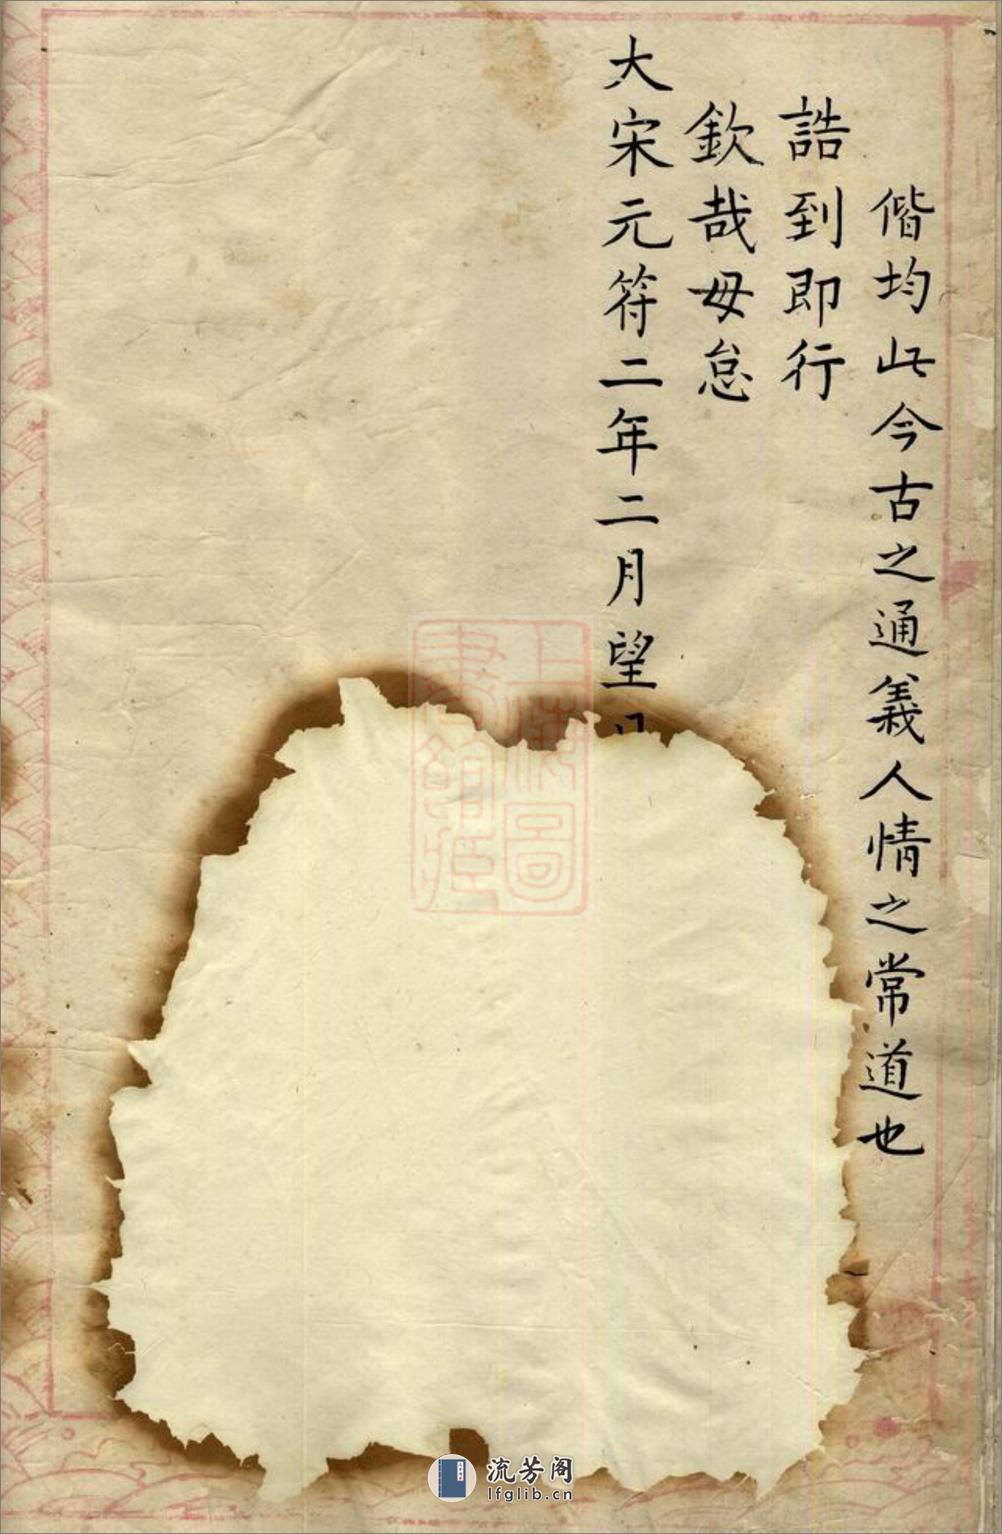 偕均此今古之通義人情之常道也
誥到即行
欽哉毋怠
大宋元符二年二月望日
上海圖書館藏
流芳阁
lfglib.cn